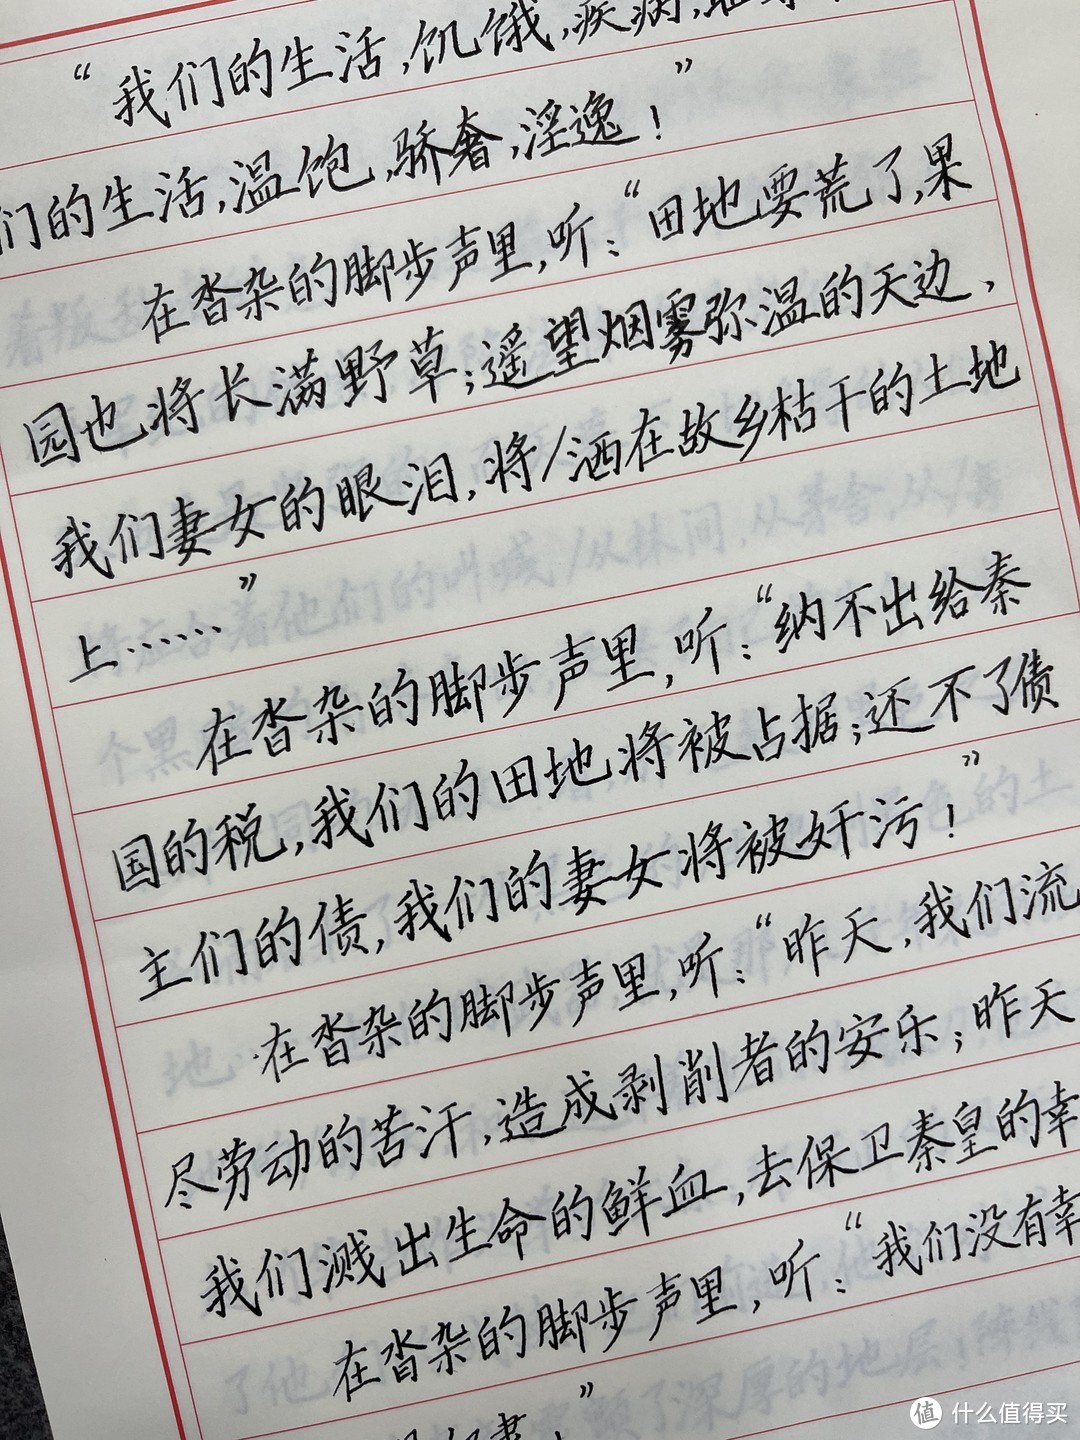 “我们的生活,饥饿,疾病,
们的生活,温饱,骄奢,淫逸!”
在沓杂的脚步声里,听:“田地要荒了,果
园也将长满野草;遥望烟雾弥温的天边,
我们妻女的眼泪,将/洒在故乡枯干的土地
上……”
在沓杂的脚步声里,听:“纳不出给秦
国的税,我们的田地将被占据;还不了债
主们的债,我们的妻女将被奸污!”
在沓杂的脚步声里,听:“昨天,我们流
尽劳动的苦汗,造成剥削者的安乐;昨天
我们溅出生命的鲜血,去保卫秦皇的幸
在沓杂的脚步声里,听:“我们没有幸
妻”
值 什么值得买